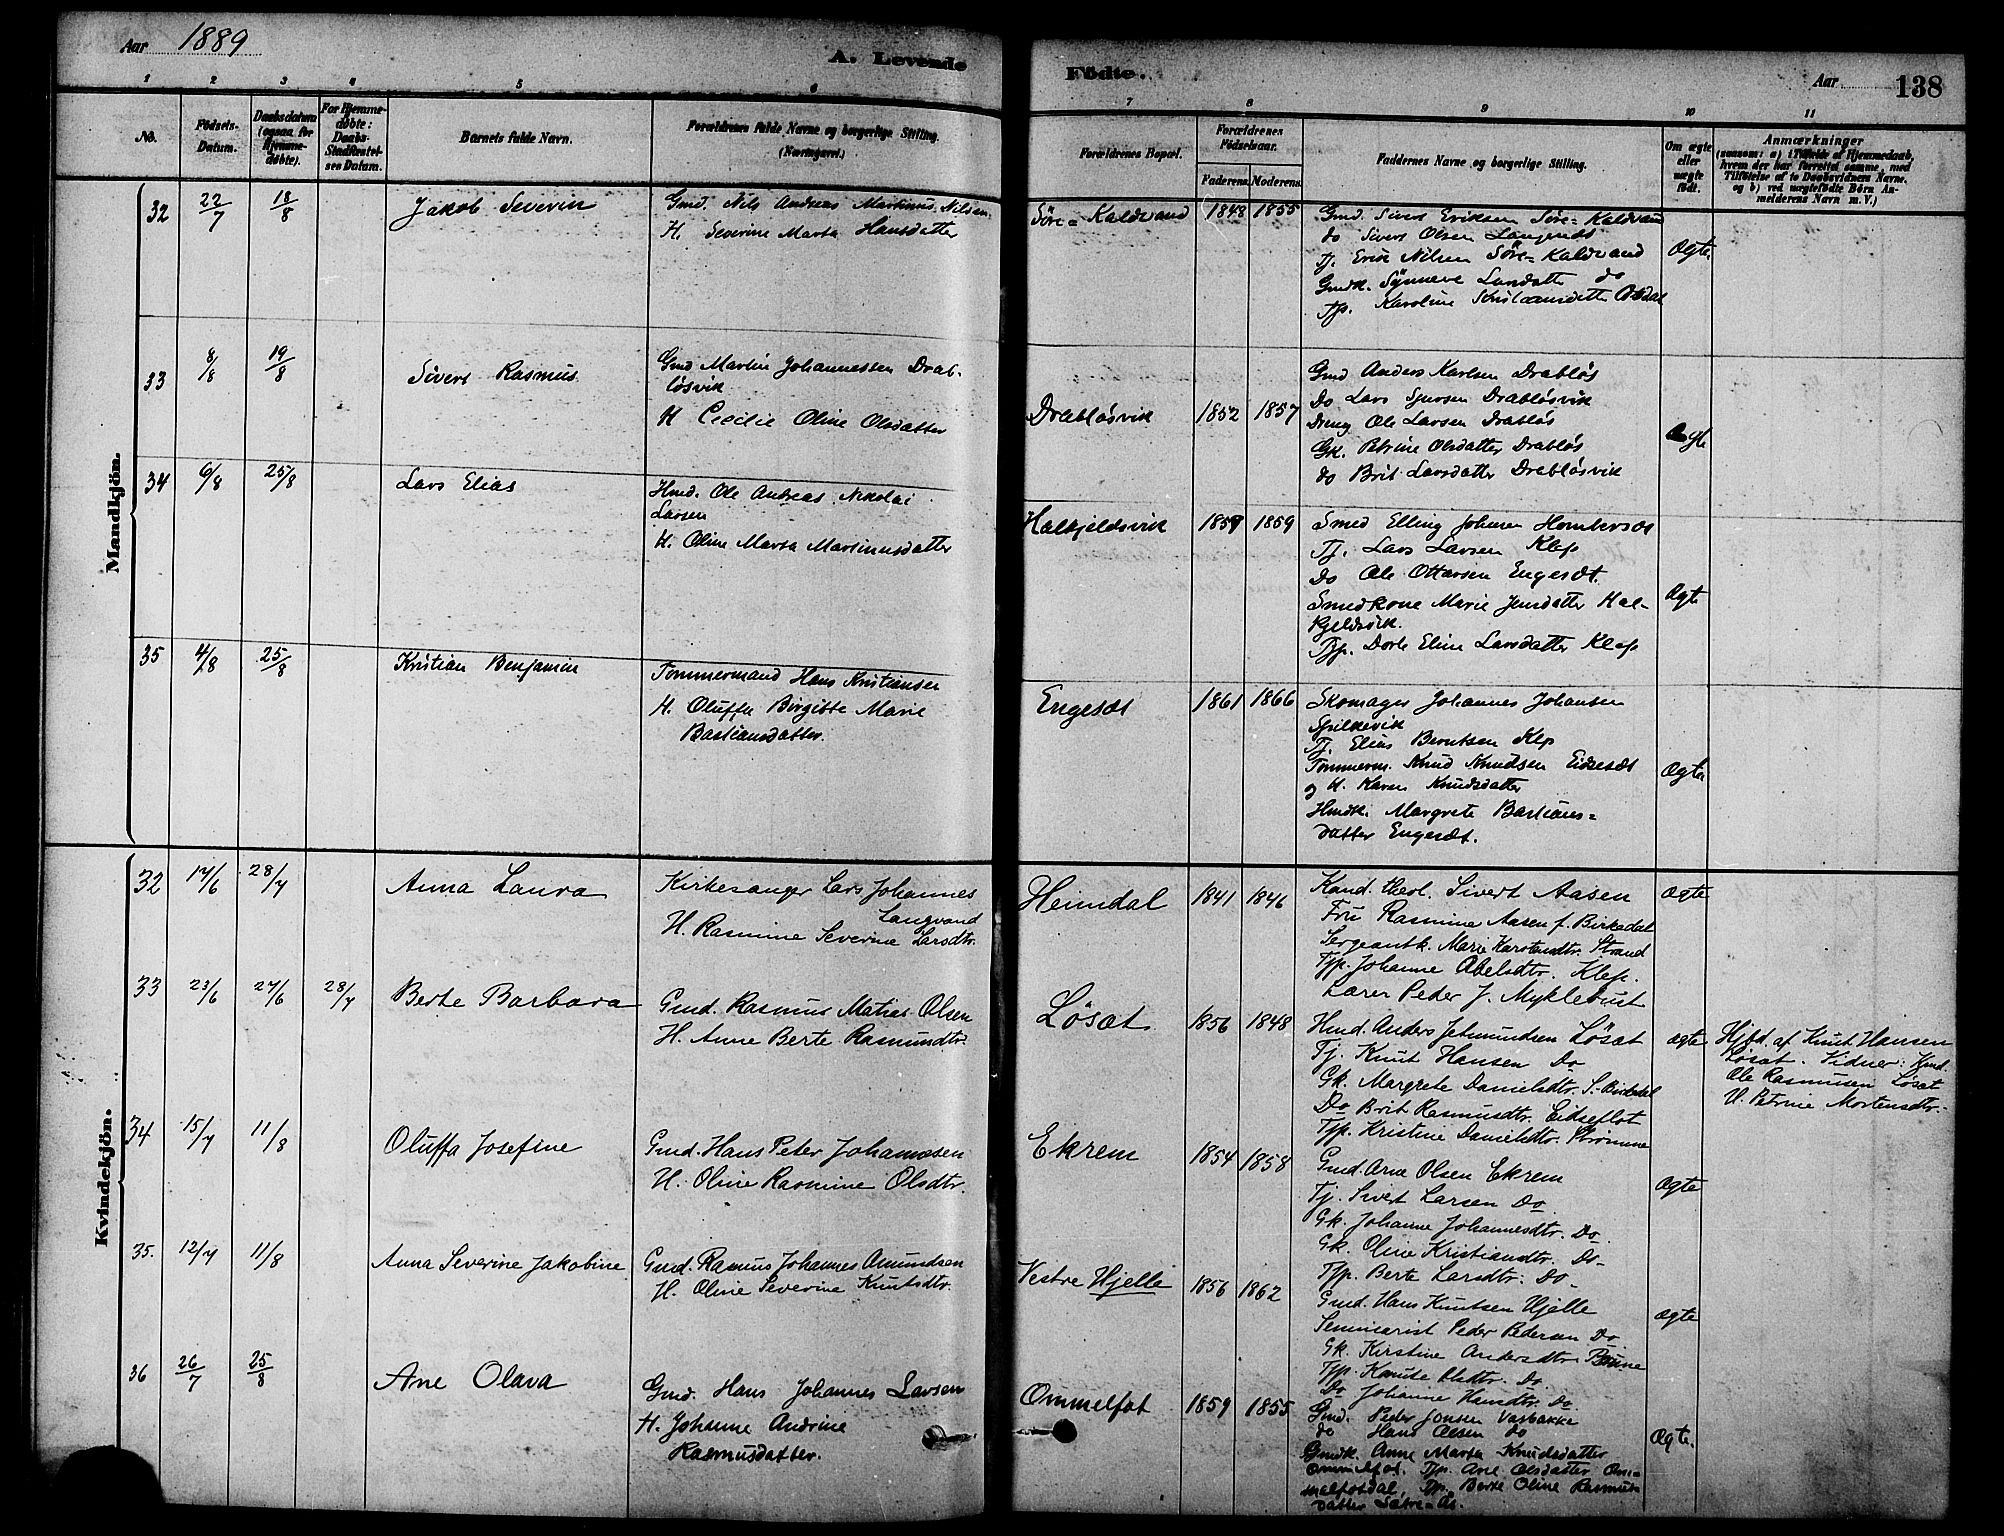 Aar 1889
A. Levende Födte.
Aar 138
1 2 3 4 5 6 7 8 9 10 11
No.
Födsels-
Datum.
Daabsdatum
(ogsaa for
Hjemme-
døbte).
For Hjemme-
døbte:
Daabs-
Stadfæstel-
ses Datum.
Barnets fulde Navn.
Forældrenes fulde Navne og borgerlige Stilling.
(Næringsvei.)
Forældrenes Bopæl.
Forældrenes
Födselsaar.
Faderens. Moderens.
Faddernes Navne og borgerlige Stilling.
Om ægte
eller
uægte
födt.
Anmærkninger
(saasom: a) i Tilfælde af Hjemmedaab,
hvem der har forrettet samme, med
Tilföielse af to Daabsvidners Navne,
og b) ved uægtefödte Börn An-
melderens Navn m. V.)
Mandkjön.
32 22/7 18/8 Jakob Severin
Gmd. Nils Andreas Martinus Nilsen
H. Severine Marta Hansdatter
Søre-Kaldvand 1848 1855
Gmd. Sivert Eriksen Søre-Kaldvand
do Sivert Olsen Langesæt
Tj. Erik Nilsen Søre-Kaldvand
Gmdk. Synneve Larsdatter do
Tjp. Karoline
Ægte.
33 8/8 19/8 Sivert Rasmus
Gmd Martin Johannessen Drab-
løsvik
H Cecilie Oline Olsdatter
Drabløsvik 1852 1857
Gmd Anders Karlsen Drabløs
Do Lars Sjursen Drabløsvik
Dreng Ole Larsen Drabløs
Gk. Petrine Olsdatter Drabløs
do Brit Larsdatter Drabløsvik
Ægte
34 6/8 25/8 Lars Elias
Hmd. Ole Andreas Nikolai
Larsen
H. Oline Marta Martinusdatter
Halkjeldsvik 1859 1859
Smed Elling Johnsen Hornbersæt
Tj. Lars Larsen Klep
Do Ole Ottarsen Engesæt.
Smedkone Marie Jensdatter Hal-
kjeldsvik.
Tjp. Dorte Eline Larsdatter Klep
Ægte
35 4/8 25/8 Kristian Benjamin
Tømmermand Hans Kristiansen
H. Oluffa Birgitte Marie
Bastiansdatter.
Engesæt 1861 1866
Skomager Johannes Johansen
Spilkevik
Tj. Elias Berntsen Klep
Tømmerm. Knud Knudsen Eidsesæt
og H. Karen Knudsdatter
Hmdk. Margrete Bastians-
datter Engesæt.
Ægte
Kvindekjön.
32 17/6 28/7 Anna Laura
Kirkesanger Lars Johannes
Langvand
H. Rasmine Severine Larsdtr.
Heimdal 1841 1846
Kand. theol. Sivert Aasen
Fru Rasmine Aasen f. Birkedal
Sergeantk. Marie Karstendtr. Strand
Tjp. Johanne Abelsdtr. Klep.
Lærer Peder J. Myklebust
Ægte
33 23/6 27/6 28/7 Berte Barbara
Gmd. Rasmus Matias Olsen
H. Anne Berte Rasmundtr.
Løsæt 1856 1848
Hmd. Anders Jetmundsen Løsæt
Tj. Knut Hansen Do
Gk. Margrete Danielsdtr. S. Birkedal
Do Brit Rasmusdtr. Eidseflot
Tjp. Kristine Danielsdtr. Strømme
ægte
Hjbd. af Knut Hansen
Løsæt. Vidner: Hmd.
Ole Rasmusen Løsæt
H. Petrine Mortensdtr.
34 15/7 11/8 Oluffa Josefine
Gmd. Hans Peter Johannesen
H. Oline Rasmine Olsdtr.
Ekrem 1854 1858
Gmd. Arne Olsen Ekrem
Tj. Sivert Larsen Do
Gk. Johanne Johannesdtr. Do.
Gk. Oline Kristiandtr. Do.
Tjp. Berte Larsdtr. Do.
Ægte
35. 12/7 11/8 Anna Severine Jakobine
Gmd. Rasmus Johannes Amundsen
H. Oline Severine Knutsdtr.
Vestre Hjelle 1856 1862
Gmd. Hans Knutsen Hjelle
Seminarist Peder Pedersen Do
Gk. Kirstine Andersdtr.
Tjp. Knute Olsdtr. Do.
Do Johanne Hansdtr. Do.
Ægte
36 26/7 25/8 Ane Olava
Gmd. Hans Johannes Larsen
H. Johanne Andrine
Rasmusdatter.
Ommelfot 1859 1855
Gmd. Peder Jonsen Vasbakke
do Hans Olsen do
Gmdk. Anne Marta Knudsdatter
Ommelfot. Tjp. Ane Olsdatter Om-
melfotdal, Tjp. Berte Oline Rasmus-
datter Sætre-Ås.
Ægte.